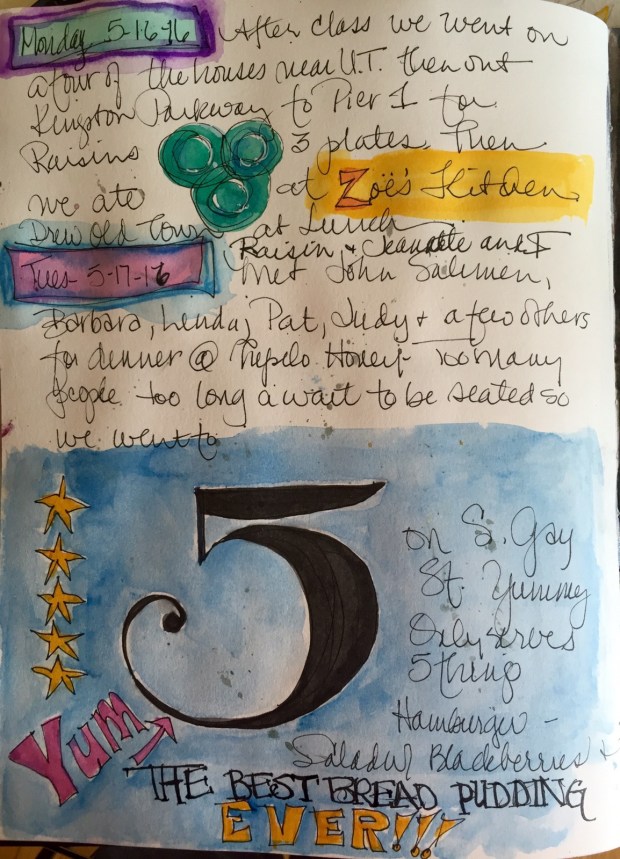 Monday 5-16-16 After class we went on
a tour of the houses near U.T. then out
Kingston Parkway to Pier 1 for
Raisins 3 plates. Then
we ate at Zoë's Kitchen
Drew Old Town at Lunch
Tues 5-17-16 Raisin, + Jeanette and I
met John Salmen,
Barbara, Linda, Pat, Judy + a few others
for dinner @ Tupelo Honey - too many
people too long a wait to be seated so
we went to
5
on S. Gay
St. Yummy
Only serves
5 thing
Hamburger -
Salad w/ Blackberries +
Yum
THE BEST BREAD PUDDING
EVER!!!